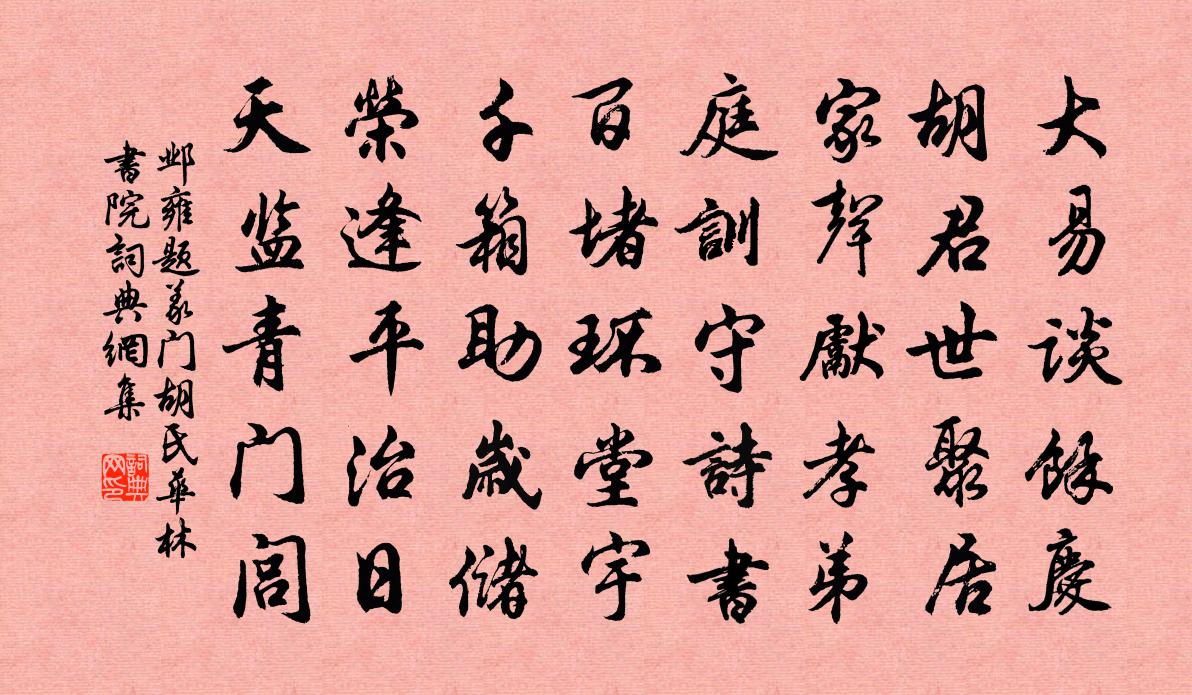 大易谈餘慶
胡君世聚居
家聲獻孝弟
庭訓守詩書
百堵环堂宇
千箱助歲儲
榮逢平治日
天监青门闾
邺雍题義门胡民華林
書院詞典網集
詞典
网印